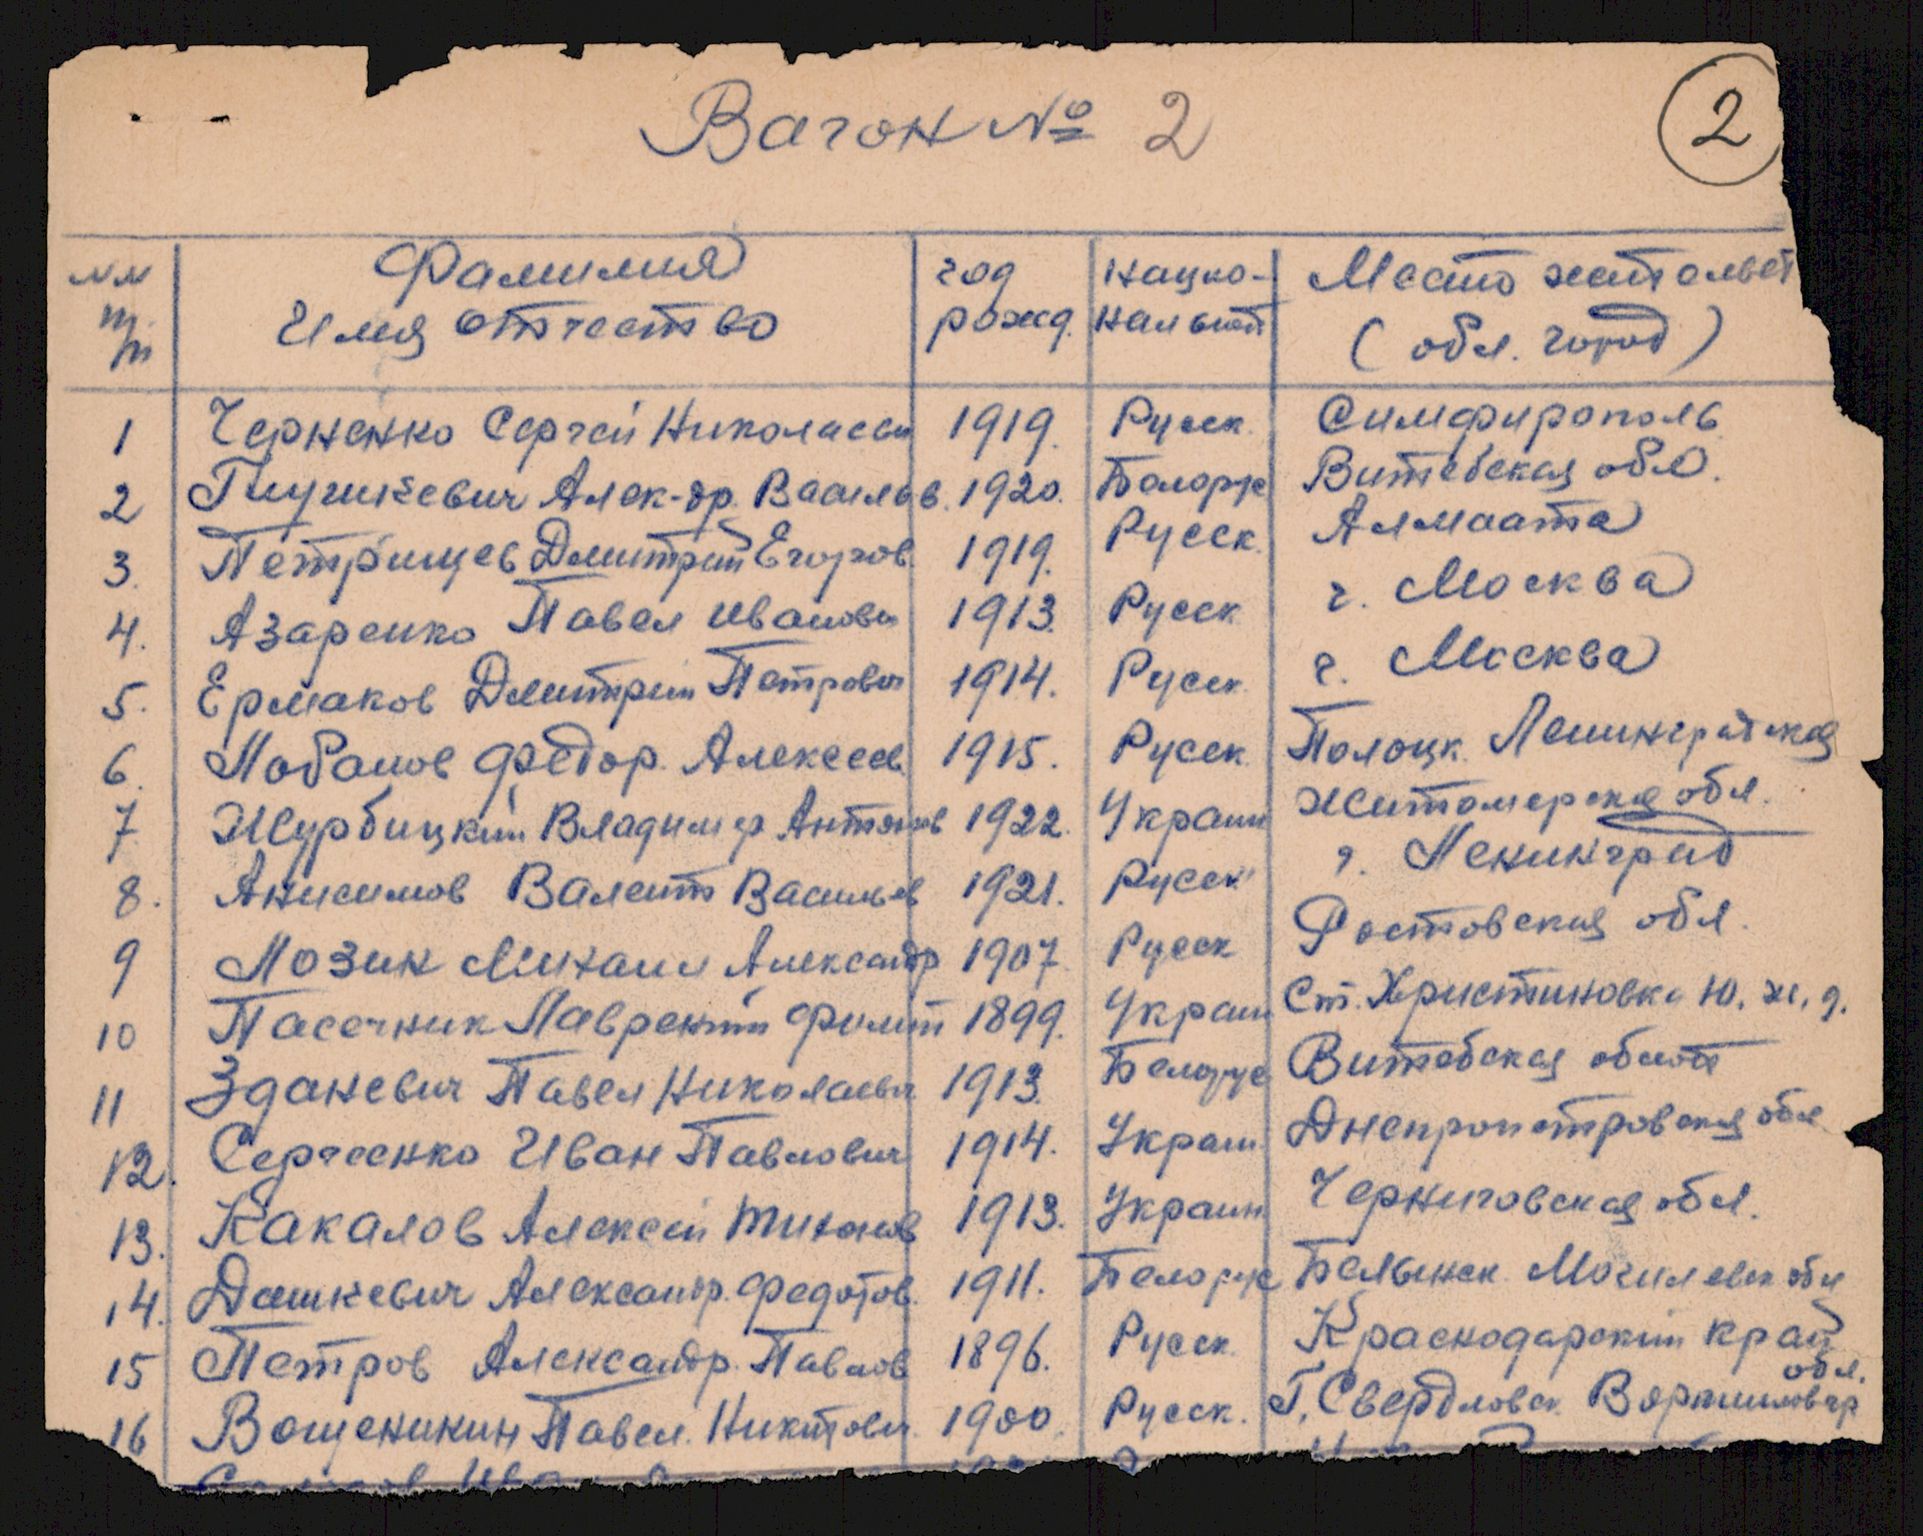 Вагон № 2
2
№№ п/п Фамилия Имя отчество год рожд. Нацио-нальност Место жительст (обл. город)
1 Черненко Сергей Николаевич 1919. Русск. Симфирополь
2 Глушкевич Алек-др. Васильев. 1920. Белорус Витебская обл.
3. Петрищев Дмитрий Егоров. 1919. Русск. Алмаата
4. Азаренко Павел Иванович 1913. Русск г. Москва
5. Ермаков Дмитрий Петрович 1914. Русск г. Москва
6. Лобанов Федор. Алексеев. 1915. Русск. Полоцк. Ленинградская
7 Журбицкий Владимир Антонов 1922. Украин Житомерская обл.
8. Анисимов Валент Васильев 1921. Русск г. Ленинград
9 Лозин Михаил Александр 1907 Русск Ростовская обл.
10 Пасечник Лаврентий Филип 1899. Украин Ст. Христиновка Ю. ж. д.
11 Зданевич Павел Николаевич 1913. Белорус Витебская област
12. Сергеенко Иван Павлович 1914. Украин Днепропетровская обл
13. Какалов Алексей Тихонов 1913. Украин Черниговская обл.
14. Дашкевич Александр. Федотов. 1911. Белорус Белынек. Могилевск обл
15 Петров Александр. Павлов 1896. Русск. Краснодарский край
16 Вощеникин Павел. Никитович 1900. Русск. Г. Свердловск обл.